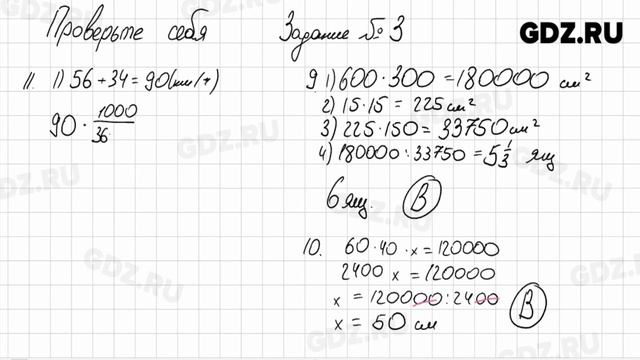 Проверьте себя
Задание № 3
GDZ.RU
11. 1) 56 + 34 = 90 (км/ч)
90 · 1000/36
9 1) 600 · 300 = 180000 см²
2) 15 · 15 = 225 см²
3) 225 · 150 = 33750 см²
4) 180000 : 33750 = 5 1/3 ящ
6 ящ. В
10. 60 · 40 · x = 120000
2400 x = 120000
x = 120000 : 2400
x = 50 см
В
GDZ.RU
GDZ.RU
GDZ.RU
GDZ.RU
GDZ.RU